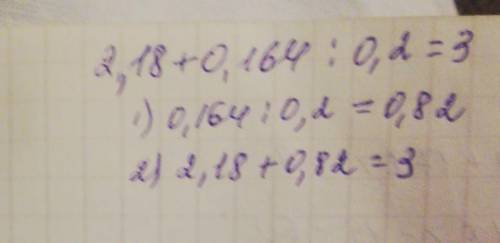 2,18+0,164:0,2=3
1) 0,164:0,2=0,82
2) 2,18+0,82=3